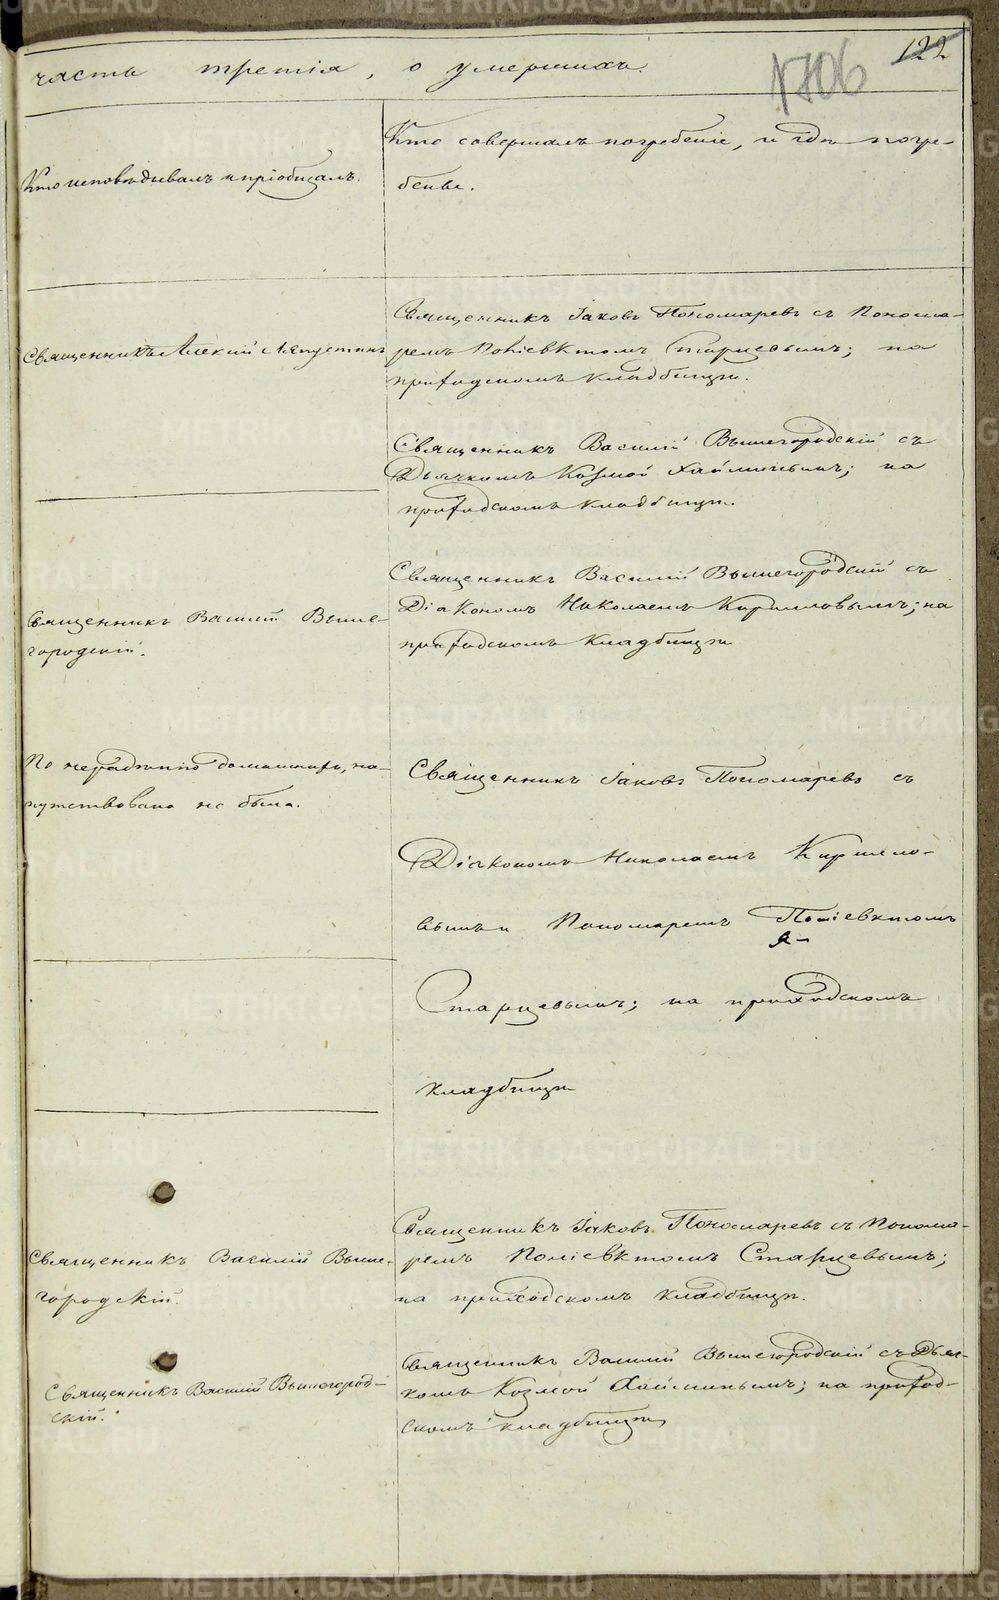 часть третія, о умершихъ.
122
1706
Кто исповѣдывалъ и пріобщалъ.
Кто совершалъ погребеніе, и гдѣ погре-
бены.
Священникъ Алексій
Священникъ Іаковъ Пономаревъ съ Понома-
ремъ Поліевктомъ Старцевымъ; на
приходскомъ кладбищѣ.
Священникъ Василій Вышегородскій съ
Дьячкомъ Козмой Хайминымъ; на
приходскомъ кладбищѣ.
Священникъ Василій Выше-
городскій.
Священникъ Василій Вышегородскій съ
Діакономъ Николаемъ Кирилловымъ; на
приходскомъ кладбищѣ
По нерадѣнію домашнихъ, на-
путствована не была.
Священникъ Іаковъ Пономаревъ съ
Діакономъ Николаемъ Кирилло-
вымъ и Пономаремъ Поліевктомъ
Я-
Старцевымъ; на приходскомъ
кладбищѣ
Священникъ Василій Выше-
городскій.
Священникъ Іаковъ Пономаревъ съ Понома-
ремъ Поліевктомъ Старцевымъ;
на приходскомъ кладбищѣ.
Священникъ Василій Вышегород-
скій.
Священникъ Василій Вышегородскій съ Дьяч-
комъ Козмой Хайминымъ; на приход-
скомъ кладбищѣ
METRIKI.GASO-URAL.RU